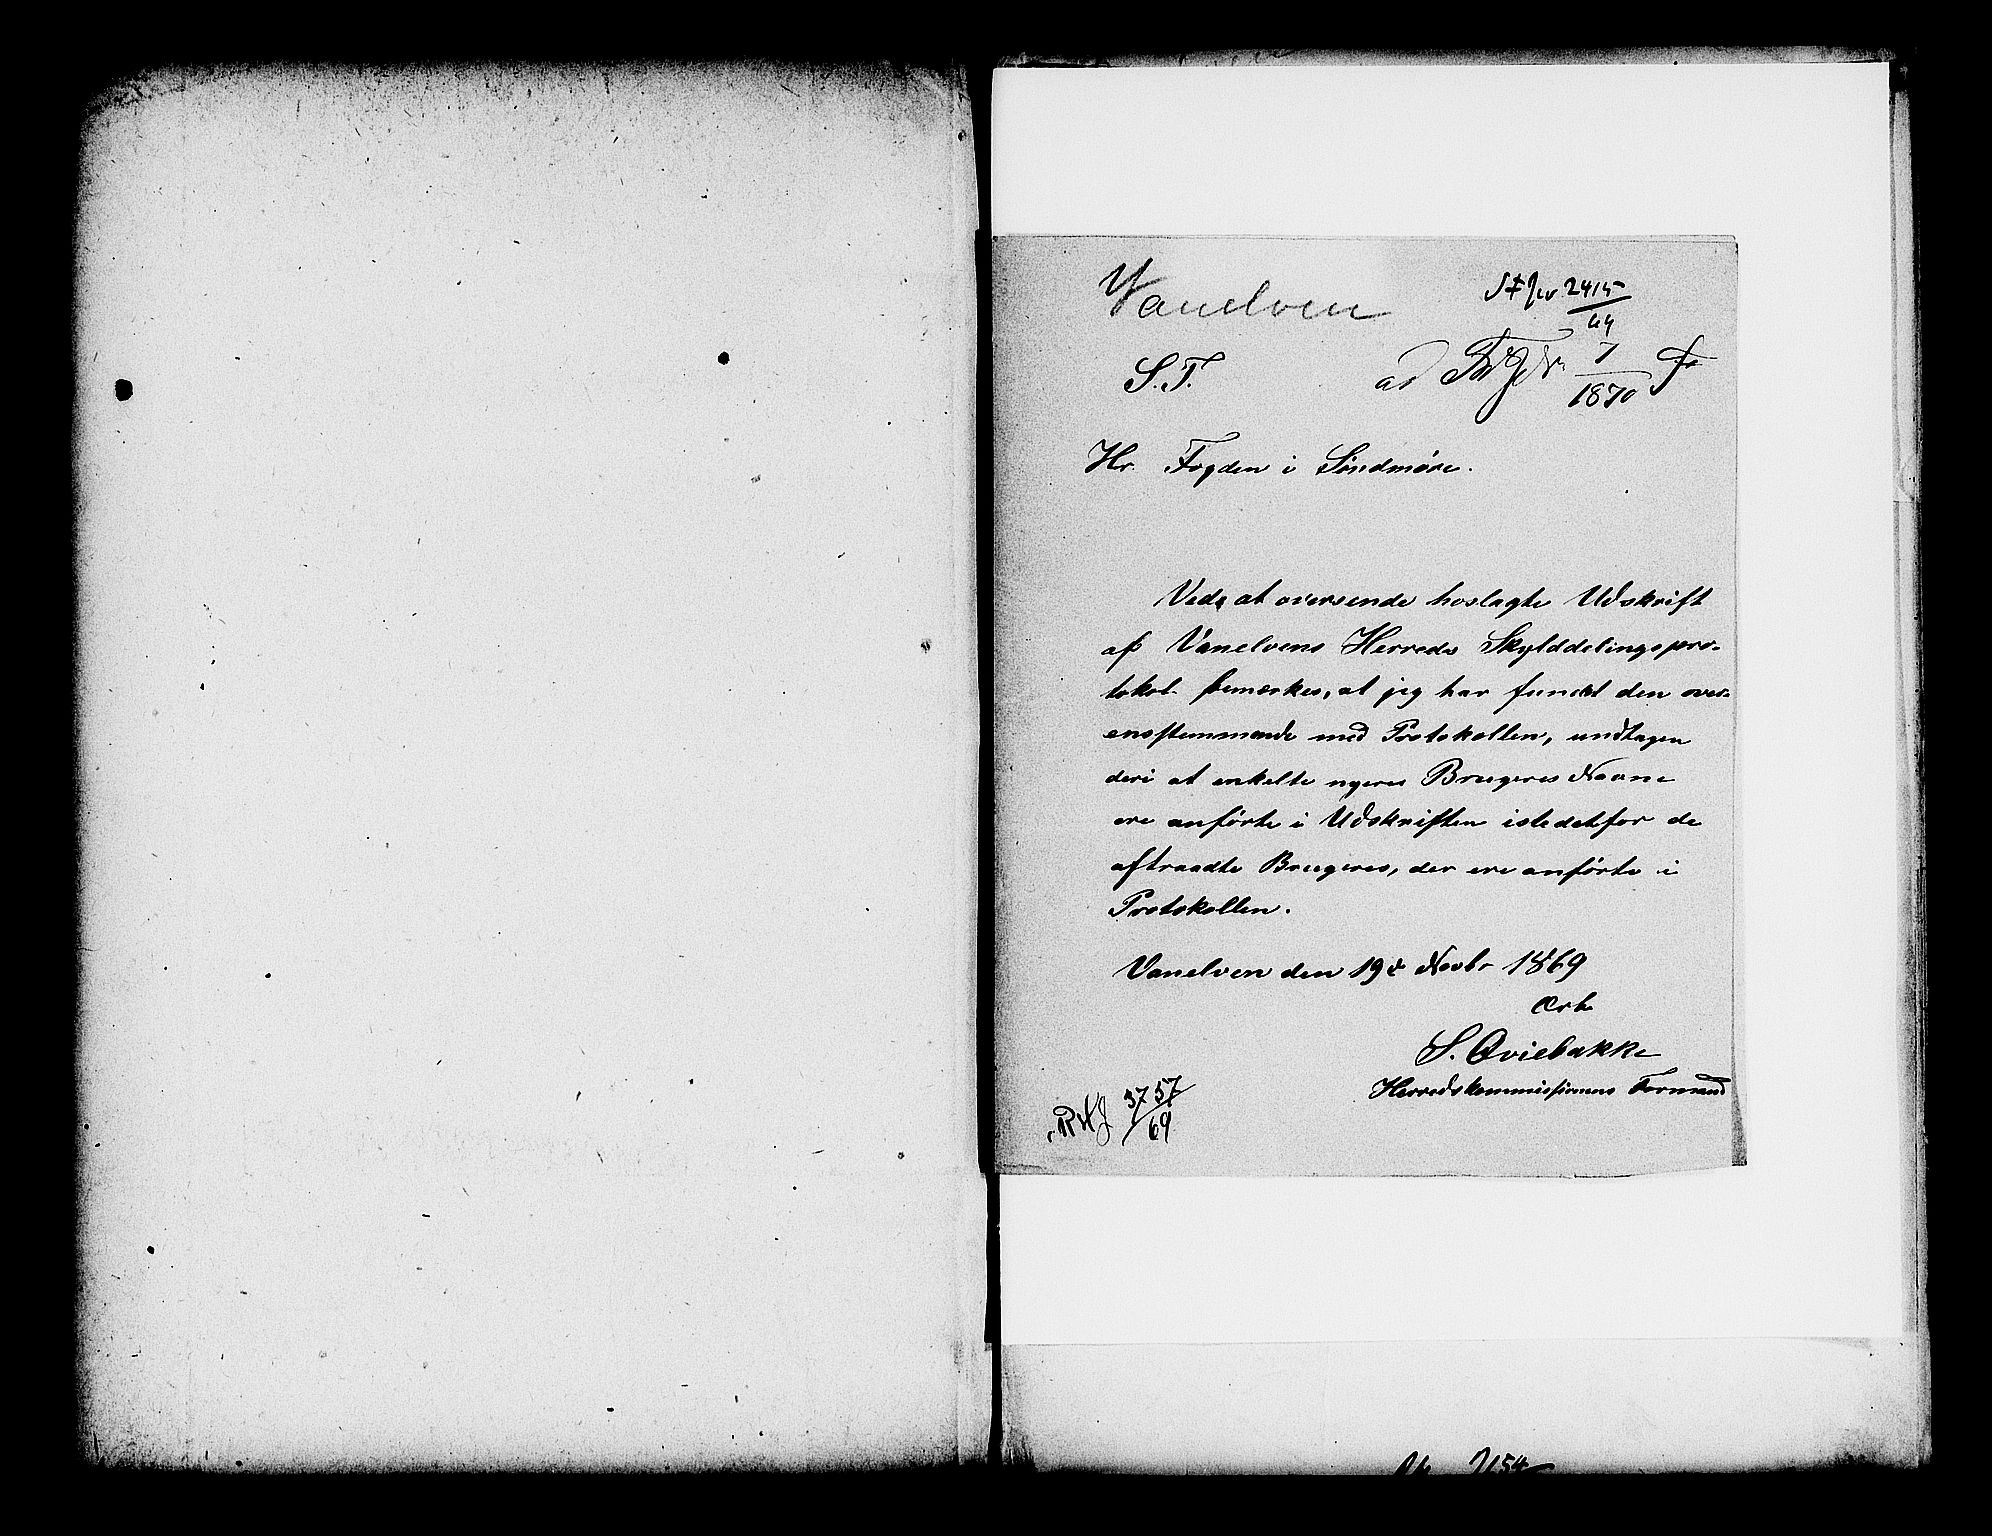 Vanelven
2415
69
S. T.
ad
7
1870
Hr. Fogden i Söndmöre.
Ved, at oversende hoslagte Udskrift
af Vanelvens Herreds Skylddelingspro-
tokol bemærkes, at jeg har fundet den over-
ensstemmende med Protokollen, undtagen
deri at enkelte nyere Brugeres Navne
ere anförte i Udskriften istedetfor de
aftraadte Brugeres, der ere anförte i
Protokollen.
Vanelven den 19de Novbr 1869
Ærb
S. Qviebakke
Herredskommissionens Formand
3757
69